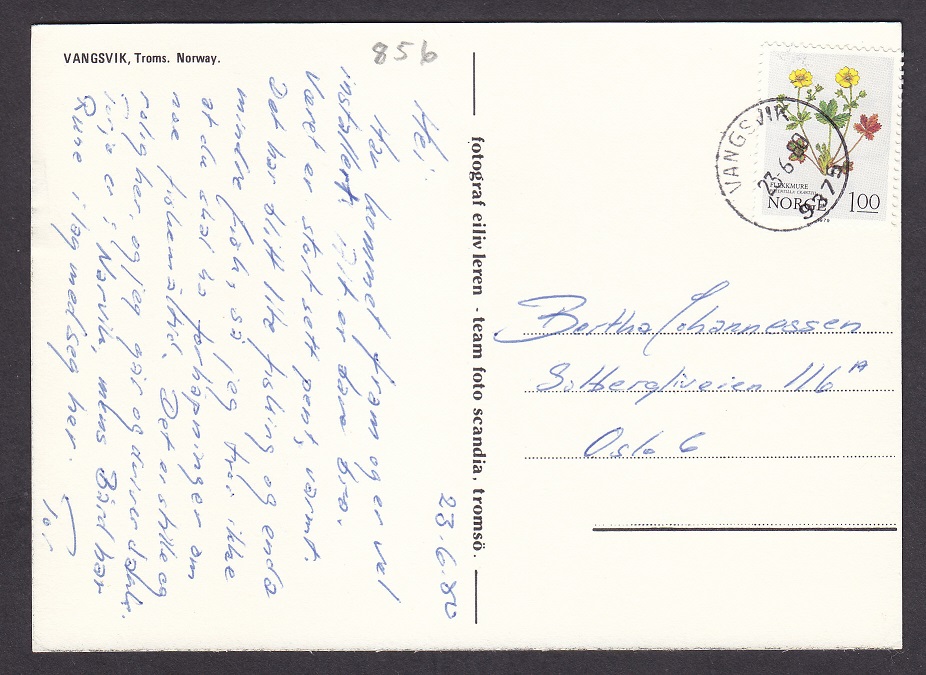 VANGSVIK, Troms. Norway.
856
23.6.80
Hei!
Har kommet fram og er vel
installert. Alt er bare bra.
Været er stort sett pent, varmt.
Det har blitt lite fisking og enda
mindre fisk, så jeg tror ikke
at du skal ha forhåpninger om
noe fiskemåltid. Det er stille og
rolig her, og jeg går og driver dank.
er i Narvik, mens Bård har
Rune i lag med seg her.
Tor
fotograf eiliv leren - team foto scandia, tromsö.
VANGSVIK
23-6-80
9375
FLEKKMURE
POTENTILLA CRANTZII
NORGE 1.00
1979
Bertha Johannessen
Solbergliveien 116 A
Oslo 6